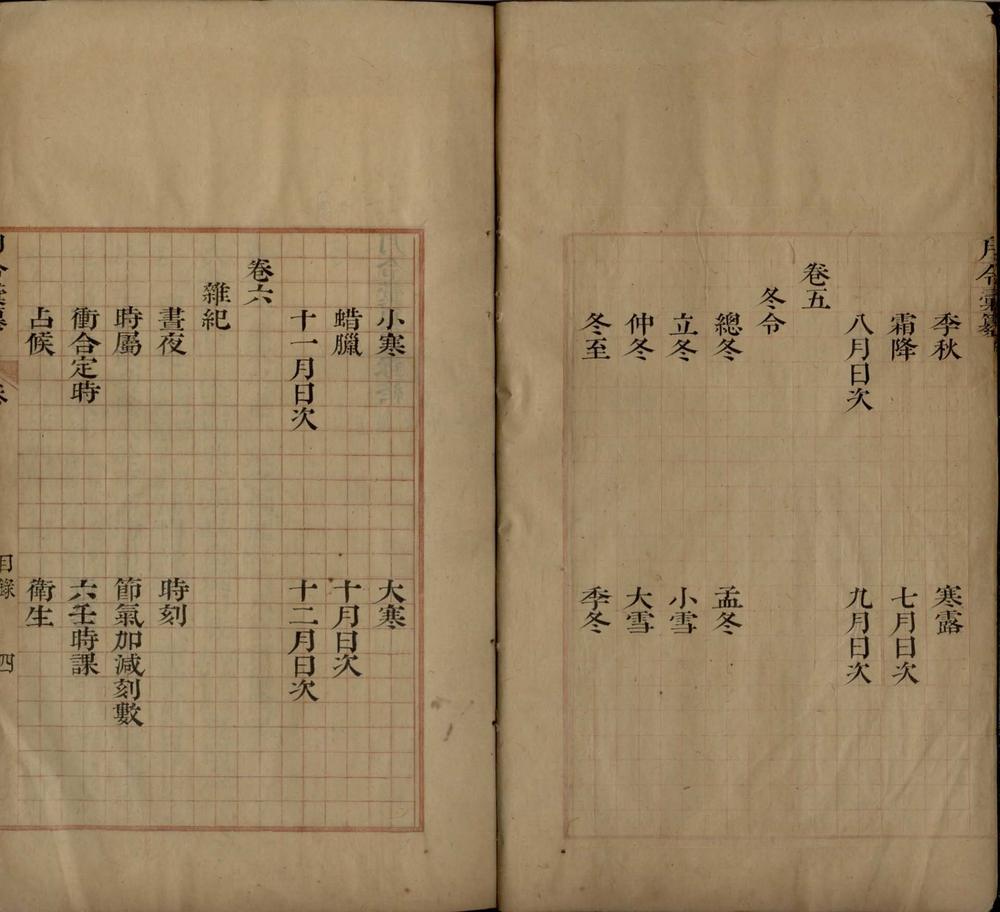 月令彙纂
季秋　寒露
霜降　七月日次
八月日次　九月日次
卷五
冬令
總冬　孟冬
立冬　小雪
仲冬　大雪
冬至　季冬
小寒　大寒
蜡臘　十月日次
十一月日次　十二月日次
卷六
雜紀
晝夜　時刻
時屬　節氣加減刻數
衝合定時　六壬時課
占候　衛生
月令彙纂　卷　目錄　四